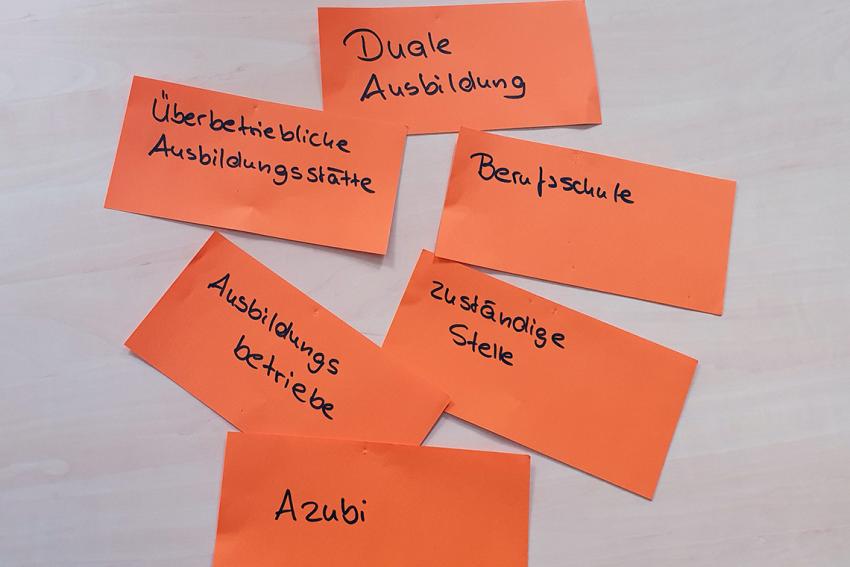 Duale
Ausbildung
Überbetriebliche
Ausbildungsstätte
Berufsschule
Ausbildungs
betriebe
zuständige
Stelle
Azubi